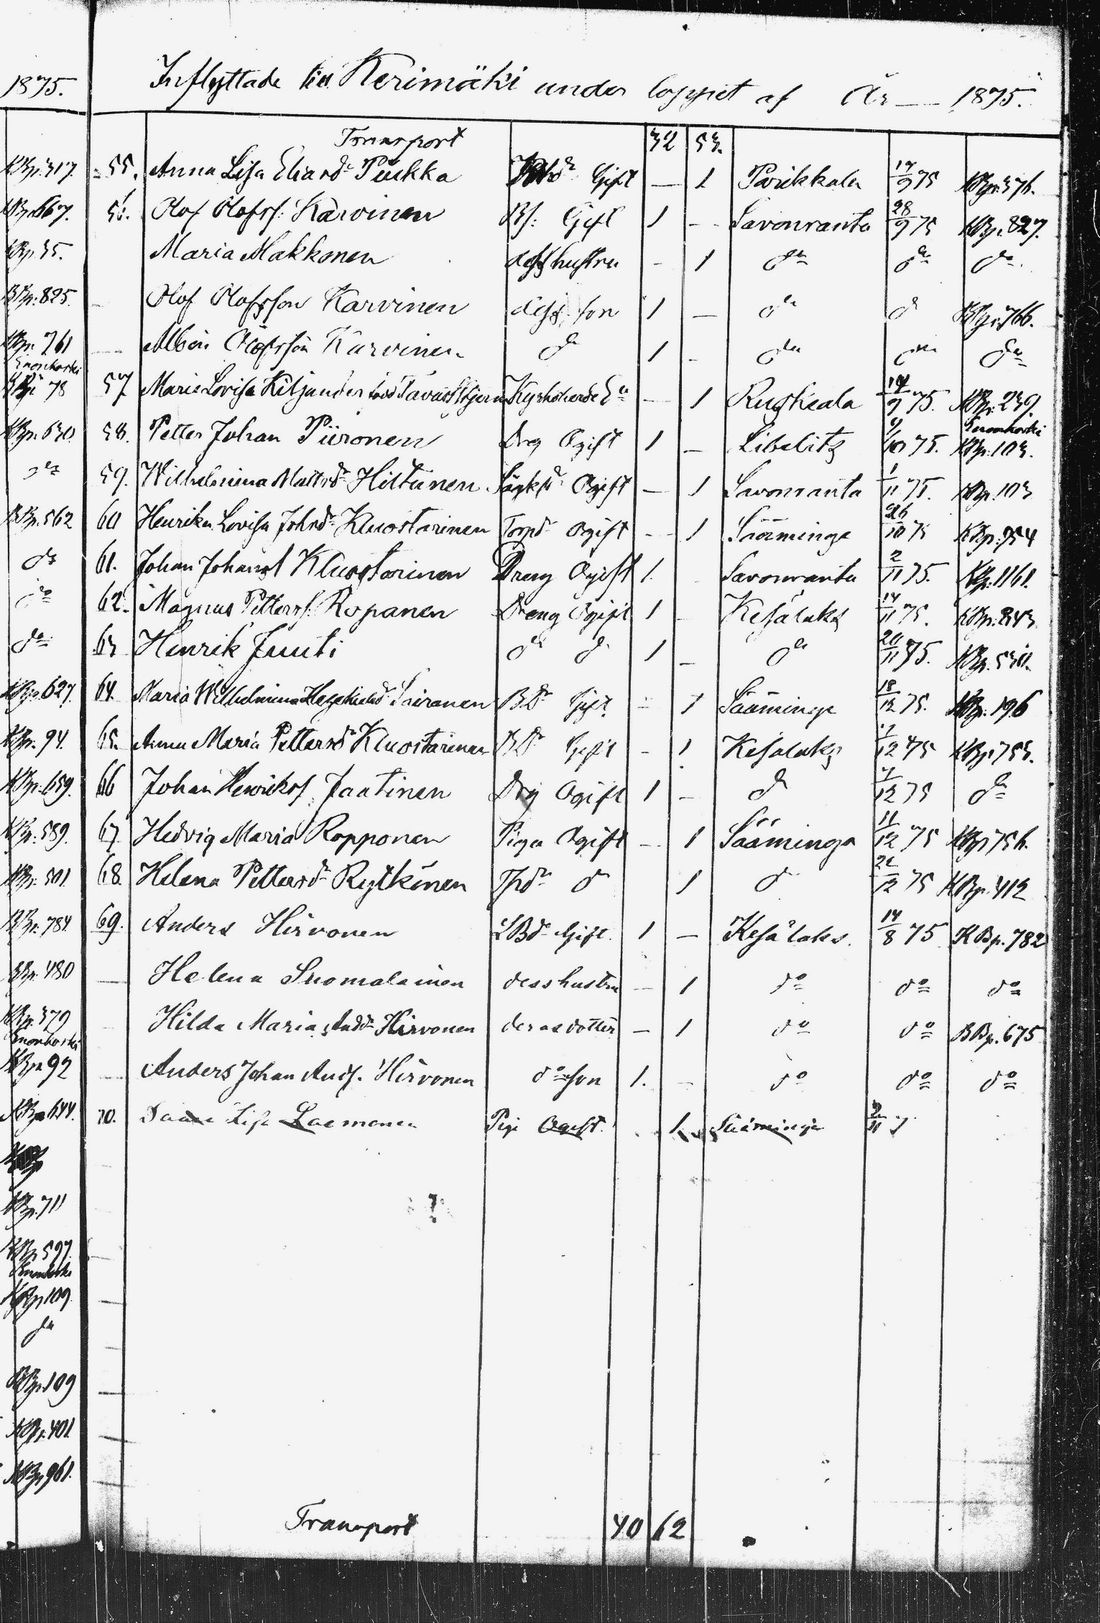 1875.
Inflyttade till Kerimäki under loppet af År — 1875.
Transport 32 53.
KBp. 317. 55. Anna Lisa Eliasd. Puikka Gift — 1 Parikkala 17/9 75 KBp. 376.
KBp. 667. 56. Olof Olofss. Karvinen Bs. Gift 1 — Savonranta 28/9 75 KBp. 827.
KBp. 35. Maria Makkonen dess hustru — 1 do do do
KBp. 825. — Olof Olofsson Karvinen dess son 1 — do do KBp. 766.
KBp. 761 — Albin Olofsson Karvinen do 1 — do do do
Enonkoski
KBp. 78 57. Maria Lovisa Kiljander född Tavaststjerna — 1 Ruskeala 14/9 75. KBp. 239.
KBp. 630 58. Petter Johan Piironen Dreng Ogift 1 — Libelitz 9/10 75. Enonkoski KBp. 103.
do 59. Wilhelmina Mattsd. Hiltunen Ogift — 1 Savonranta 1/11 75. KBp. 103
KBp. 562 60 Henrika Lovisa Johsd. Kluostarinen Torpd. Ogift — 1 Sääminge 26/10 75 KBp. 954
do 61. Johan Johanss. Kluostarinen Dreng Ogift 1. Savonranta 2/11 75. KBp. 1161.
do 62. Magnus Petterss. Ropanen Dreng Ogift 1 — Kesälaks 14/11 75. KBp. 843.
do 63 Henrik Juuti do do 1 — do 20/11 75. KBp. 530.
KBp. 627. 64. Maria Wilhelmina Siiranen Bd. Gift. — 1 Sääminge 18/12 75. KBp. 196
KBp. 94. 65. Anna Maria Pettersd. Kluostarinen Bd. Gift — 1 Kesälaks 7/12 75 KBp. 753.
KBp. 659. 66 Johan Henrikss. Jaatinen Dreng Ogift 1 — do 7/12 75 do
KBp. 589. 67 Hedvig Maria Ropponen Piga Ogift — 1 Sääminge 11/12 75 KBp. 756.
KBp. 501. 68. Helena Pettersd. Rytkönen Tpd. do 1 do 22/12 75 KBp. 412
KBp. 784. 69. Anders Hirvonen Gift. 1 — Kesälaks. 14/8 75 KBp. 782
KBp. 480 — Helena Suomalainen dess hustru — 1 do do do
KBp. 379 Hilda Maria Andd. Hirvonen deras dotter — 1 do do BBp. 675
Enonkoski
KBp. 92 — Anders Johan Ands. Hirvonen do son 1. — do do do
KBp. 644. 70. Lisa Laamanen Piga Ogift. 1 Sääminge
KBp. 711
KBp. 597.
Enonkoski
KBp. 109.
do
KBp. 109
KBp. 401
KBp. 961.
Transport 40 62